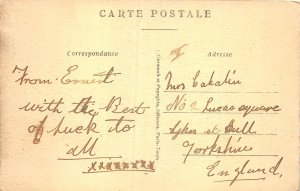 CARTE POSTALE
Correspondance
Adresse
From Ernest
with the Best
of luck to
all
xxxxxxx
Mrs
No 2 Lucas square
st Hull
Yorkshire
England